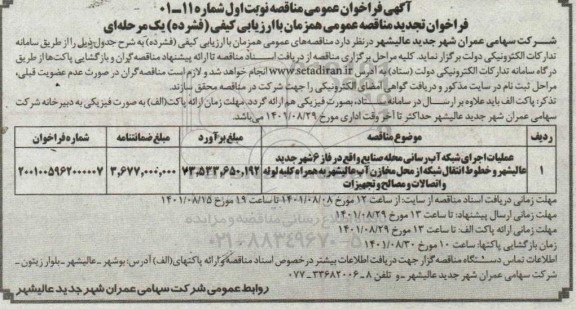 آگهی فراخوان عمومی مناقصه نوبت اول شماره ۱۱-۰۱
فراخوان تجدید مناقصه عمومی همزمان با ارزیابی کیفی (فشرده) یک مرحله‌ای
شرکت سهامی عمران شهر جدید عالیشهر درنظر دارد مناقصه‌های عمومی همزمان با ارزیابی کیفی (فشرده) به شرح جدول ذیل را از طریق سامانه
تدارکات الکترونیکی دولت برگزار نماید. کلیه مراحل برگزاری مناقصه از دریافت اسناد مناقصه تا ارائه پیشنهاد مناقصه گران و بازگشایی پاکت‌ها از طریق
درگاه سامانه تدارکات الکترونیکی دولت (ستاد) به آدرس www.setadiran.ir انجام خواهد شد و لازم است مناقصه گران در صورت عدم عضویت قبلی،
مراحل ثبت نام در سایت مذکور و دریافت گواهی امضای الکترونیکی را جهت شرکت در مناقصه محقق سازند.
تذکر: پاکت الف باید علاوه بر ارسال در سامانه ستاد، بصورت فیزیکی هم ارائه گردد. مهلت زمان ارائه پاکت (الف) به صورت فیزیکی به دبیرخانه شرکت
سهامی عمران شهر جدید عالیشهر حداکثر تا آخر وقت اداری مورخ ۱۴۰۱/۰۸/۲۹ می‌باشد.
ردیف موضوع مناقصه مبلغ برآورد مبلغ ضمانتنامه شماره فراخوان
۱ عملیات اجرای شبکه آب رسانی محله صنایع واقع در فاز ۶ شهر جدید عالیشهر و خطوط انتقال شبکه از محل مخازن آب عالیشهر به همراه کلیه لوله و اتصالات و مصالح و تجهیزات ۷۳,۵۳۳,۶۵۰,۱۹۲ ۳,۶۷۷,۰۰۰,۰۰۰ ۲۰۰۱۰۰۵۹۶۲۰۰۰۰۰۷
مهلت زمانی دریافت اسناد مناقصه از سایت: از ساعت ۱۲ مورخ ۱۴۰۱/۰۸/۰۸ تا ساعت ۱۹ مورخ ۱۴۰۱/۰۸/۱۵
مهلت زمانی ارسال پیشنهاد: تا ساعت ۱۳ مورخ ۱۴۰۱/۰۸/۲۹
مهلت زمانی ارائه پاکت الف: تا ساعت ۱۳ مورخ ۱۴۰۱/۰۸/۲۹
زمان بازگشایی پاکتها: ساعت ۱۰ مورخ ۱۴۰۱/۰۸/۳۰
اطلاعات تماس دستگاه مناقصه گزار جهت دریافت اطلاعات بیشتر درخصوص اسناد مناقصه و ارائه پاکتهای (الف) آدرس: بوشهر - عالیشهر - بلوار زیتون -
شرکت سهامی عمران شهر جدید عالیشهر - و تلفن ۸-۳۳۶۸۲۰۰۶-۰۷۷
روابط عمومی شرکت سهامی عمران شهر جدید عالیشهر